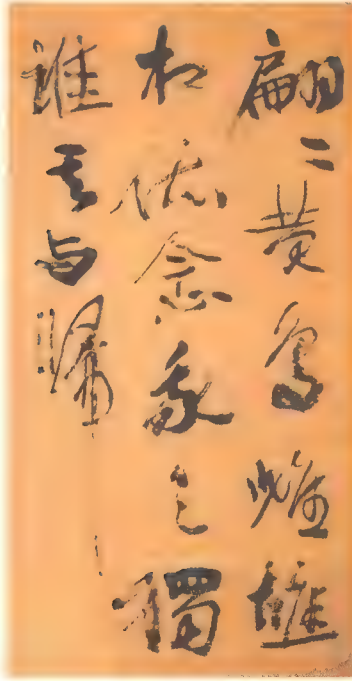 翩〻黄鳥雌雄
相依念我之獨
誰其与歸